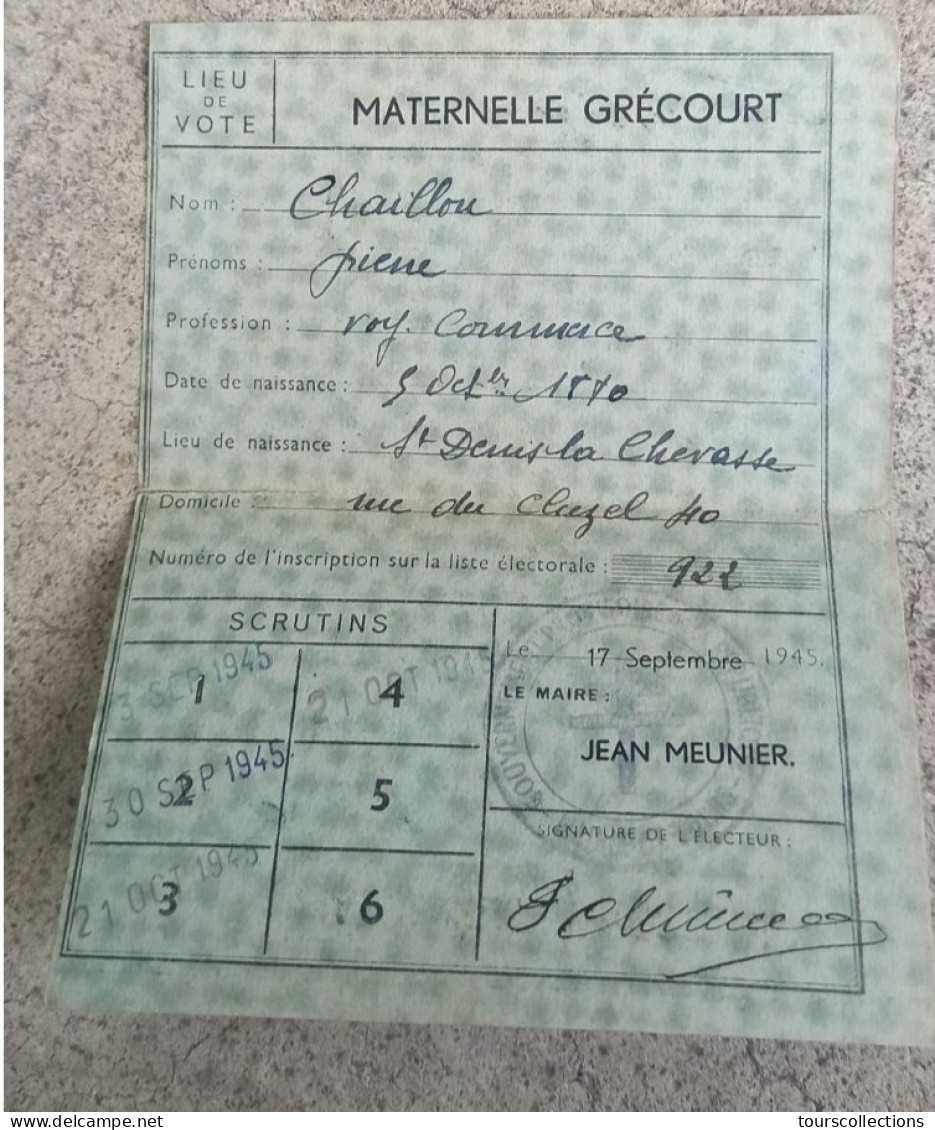 LIEU
DE
VOTE
MATERNELLE GRÉCOURT
Nom : Chaillou
Prénoms : pierre
Profession : voy. Commerce
Date de naissance : 5 Oct 18
Lieu de naissance : St Denis la Chevasse
Domicile : rue du Cluzel 40
Numéro de l'inscription sur la liste électorale : 922
SCRUTINS
1 SEP 1945
4 21 OCT 1945
30 SEP 1945 2
5
21 OCT 1945 3
6
Le 17 Septembre 1945.
LE MAIRE :
JEAN MEUNIER.
SIGNATURE DE L'ÉLECTEUR :
delcampe.net
tourscollections